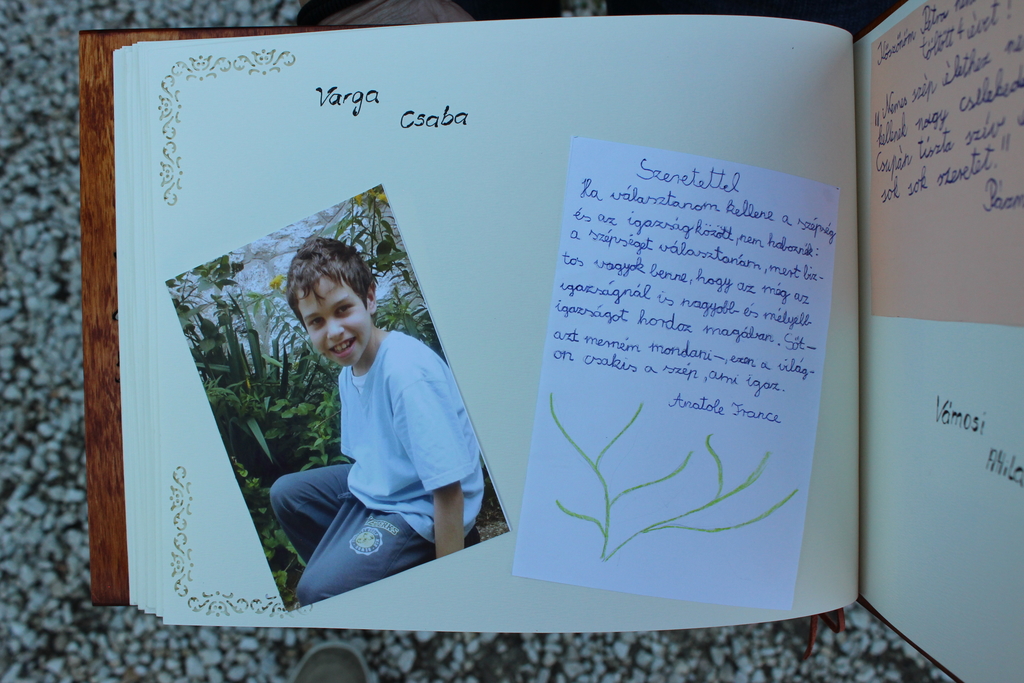 Varga
Csaba
Szeretettel
Ha választanom kellene a szépség
és az igazság között, nem haboznék:
a szépséget választanám, mert biz-
tos vagyok benne, hogy az még az
igazságnál is nagyobb és mélyebb
igazságot hordoz magában. Sőt—
azt merném mondani—, ezen a világ-
on csakis a szép, ami igaz.
Anatole France
Köszönöm Petra
töltött 4 évet!
"Nemes szép élethez ne
kellenek nagy cselekede
Csupán tiszta szív
sok sok szeretet."
Pázm
Vámosi
Attila